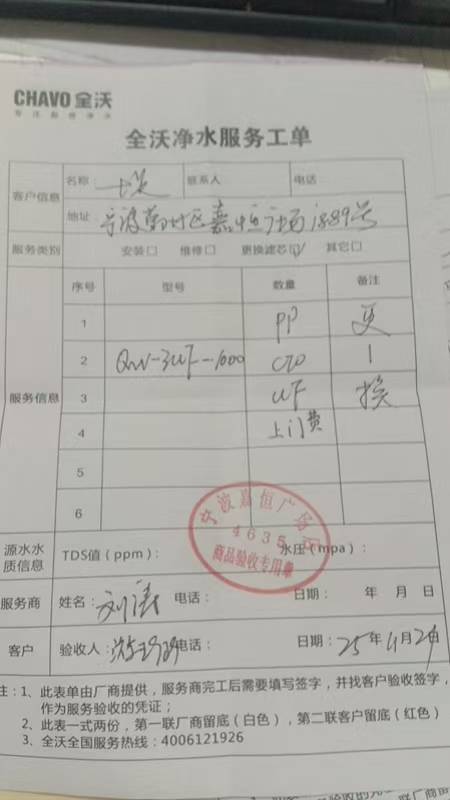 CHAVO 全沃
专注品质净水
全沃净水服务工单
客户信息
名称： 联系人 电话
地址： 宁波鄞州区嘉恒广场1889号
服务类别 安装□ 维修□ 更换滤芯☑ 其它□
服务信息
序号 型号 数量 备注
1 PP 更
2 QW-3UF-1000 CTO 1
3 UF 换
4 上门费
5
6
宁波嘉恒广场店
4635
商品验收专用章
源水水质信息
TDS值（ppm）： 水压（mpa）：
服务商 姓名：刘涛 电话： 日期： 年 月 日
客户 验收人： 电话： 日期：25年11月29
注：1、此表单由厂商提供，服务商完工后需要填写签字，并找客户验收签字，
作为服务验收的凭证；
2、此表一式两份，第一联厂商留底（白色），第二联客户留底（红色）
3、全沃全国服务热线：4006121926